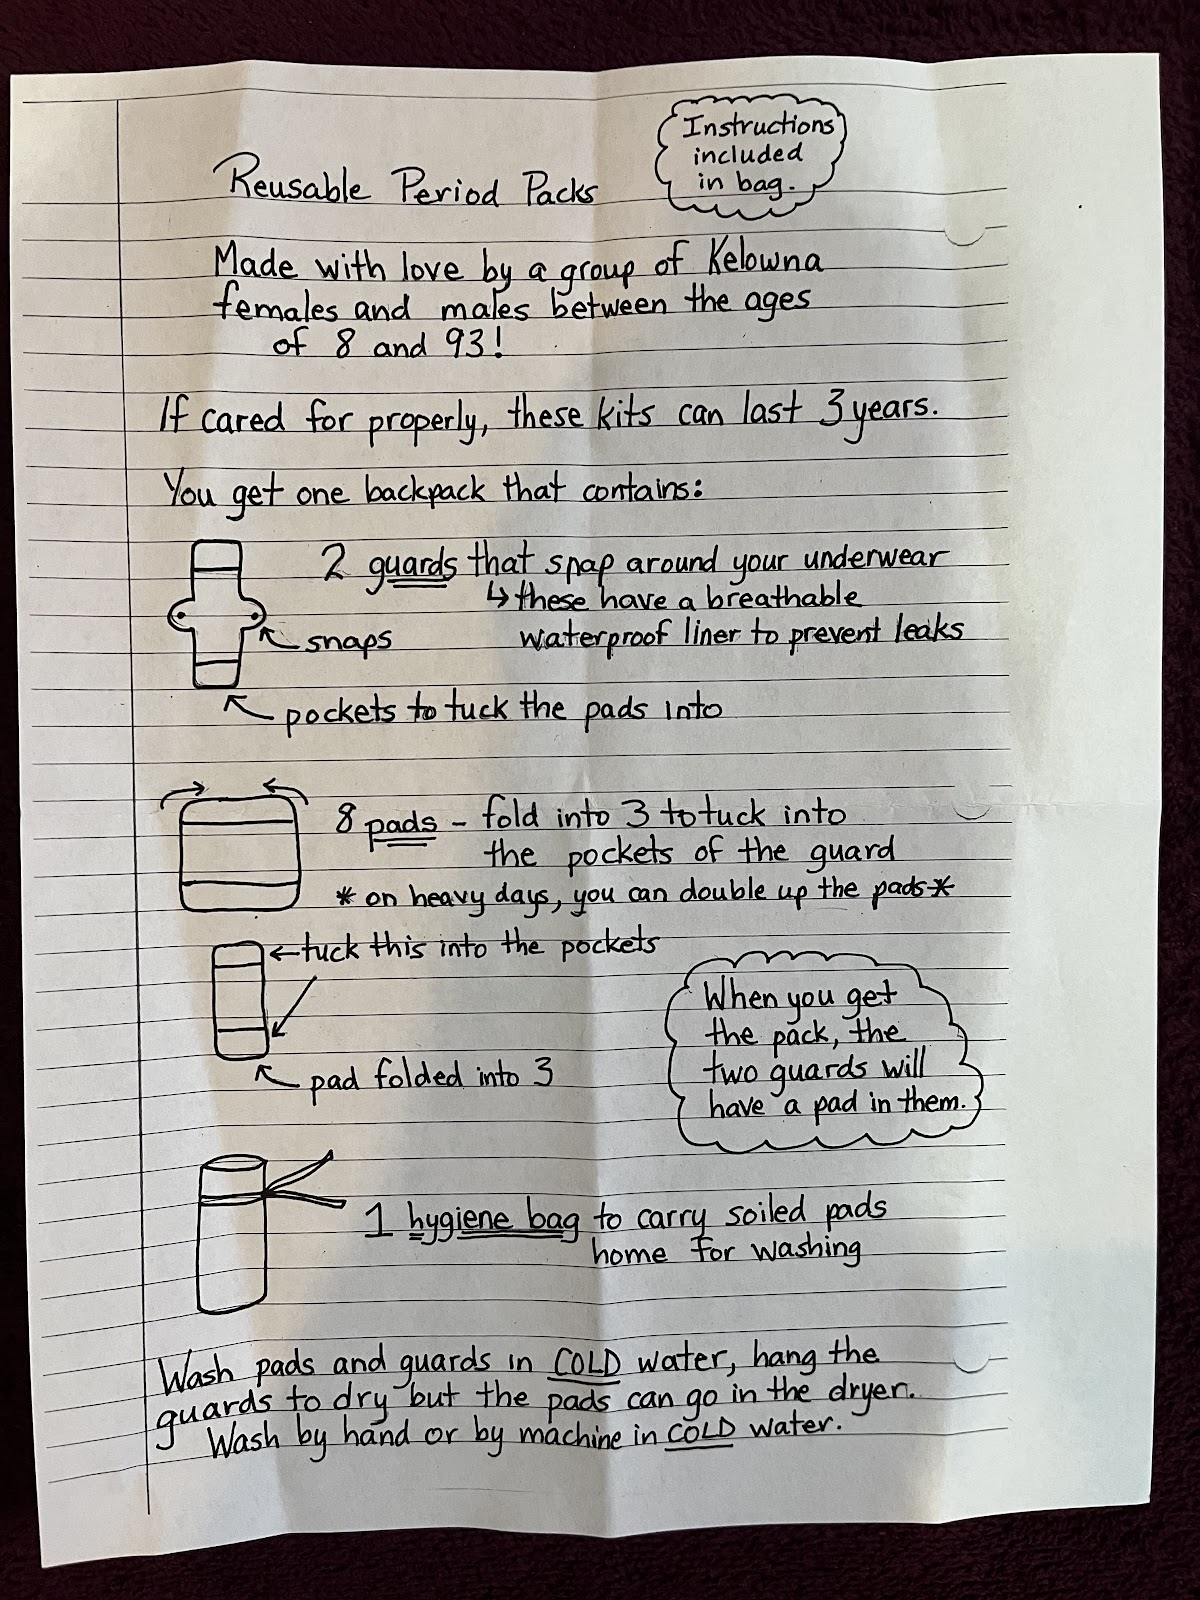 Instructions
included
in bag.
Reusable Period Packs
Made with love by a group of Kelowna
females and males between the ages
of 8 and 93!
If cared for properly, these kits can last 3 years.
You get one backpack that contains:
2 guards that snap around your underwear
↳ these have a breathable
waterproof liner to prevent leaks
← snaps
← pockets to tuck the pads into
8 pads - fold into 3 to tuck into
the pockets of the guard
* on heavy days, you can double up the pads *
← tuck this into the pockets
← pad folded into 3
When you get
the pack, the
two guards will
have a pad in them.
1 hygiene bag to carry soiled pads
home for washing
Wash pads and guards in COLD water, hang the
guards to dry but the pads can go in the dryer.
Wash by hand or by machine in COLD water.